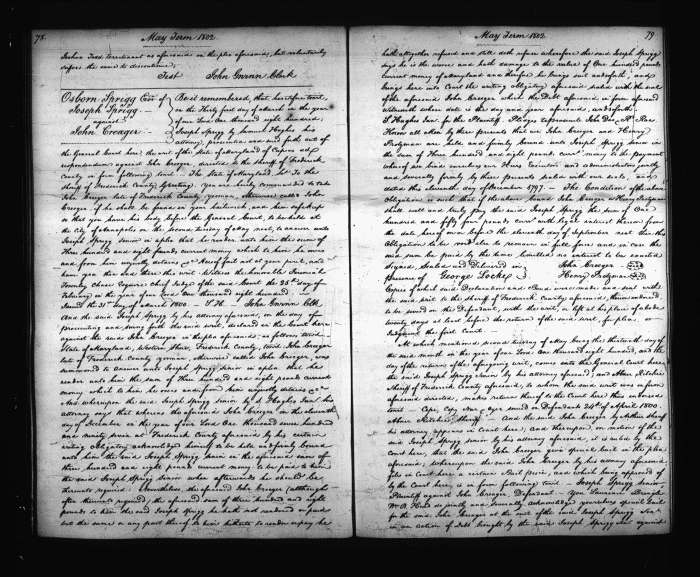 78.
May Term 1802.
Joshua Todd terretenant as aforesaid in the plea aforesaid, but voluntarily
suffers the same to discontinue,
Test John Gwinn Clerk
Osborn Sprigg Exor of
Joseph Sprigg
against
John Creager
Be it remembered, that heretofore to wit,
on the thirty first day of March in the year
of our Lord One thousand eight hundred,
Joseph Sprigg by Samuel Hughes his
attorney, prosecutes and sued forth out of
the General Court here, the writ of the State of Maryland of Capias ad
respondendum against John Creager, directed to the sheriff of Frederick
County in form following to wit. The State of Maryland, Sct. To the
sheriff of Frederick County Greeting. You are hereby commanded to take
John Creager late of Frederick County yeoman, otherwise called John
Creager, if he shall be found in your bailiwick, and him safe keep
so that you have his body before the General Court, to be held at
the City of Annapolis on the second tuesday of May next, to answer unto
Joseph Sprigg senior a plea that he render unto him the sum of
three hundred and eight pounds current money which to him he owes
and from him unjustly detains. Hereof fail not at your peril, and
have you then and there this writ. Witness the honorable Jeremiah
Townley Chase Esquire Chief Judge of the said Court the 25th day of
February in the year of our Lord One thousand eight hundred
Issued the 31st day of March 1800. S. H. John Gwinn Clk.
And the said Joseph Sprigg by his attorney aforesaid, on the day of
prosecuting and suing forth the said writ, declared in the Court here
against the said John Creager in the plea aforesaid as follows to wit
State of Maryland, Western Shore, Frederick County, to wit. John Creager
late of Frederick County yeoman, otherwise called John Creager, was
summoned to answer unto Joseph Sprigg senior in a plea that he
render unto him the sum of three hundred and eight pounds current
money which to him he owes and from him unjustly detains
And whereupon the said Joseph Sprigg senior by S. Hughes Junr his
attorney says that whereas the aforesaid John Creager on the eleventh
day of December in the year of our Lord One thousand seven hundred
and ninety seven at Frederick County aforesaid by his certain
writing Obligatory acknowledged himself to be held and firmly bound
unto him the said Joseph Sprigg senior in the aforesaid sum of
three hundred and eight pounds current money to be paid to him
the said Joseph Sprigg senior when afterwards he should be
thereunto required. Nevertheless the aforesaid John Creager (although
often thereunto required) the aforesaid sum of three hundred and eight
pounds to him the said Joseph Sprigg he hath not rendered or paid
but the same or any part thereof to him hitherto to render or pay he
May Term 1802.
79.
hath altogether refused and still doth refuse wherefore the said Joseph Sprigg
says he is the worse and hath damage to the value of One hundred pounds
current money of Maryland and therefore he brings suit and so forth, and
brings here into Court the writing Obligatory aforesaid sealed with the seal
of the aforesaid John Creager which the Debt aforesaid in form aforesaid
testifies whose date is the day and year aforesaid, and so forth.
S. Hughes Junr for the Plaintiff. Pledges to prosecute John Doe, Rd. Roe
Know all Men by these presents that we John Creager and Henry
are held and firmly bound unto Joseph Sprigg senior in
the sum of Three hundred and eight pounds Curr. money to the payment
whereof we bind ourselves our Heirs Executors and administrators jointly
and severally firmly by these presents sealed with our seals, and
dated this eleventh day of December 1797. The Condition of the above
Obligation is such that if the above bound John Creager or Henry
shall well and truly pay the said Joseph Sprigg the sum of One
hundred and fifty four pounds Current with interest thereon from
the date hereof on or before the eleventh day of September next then this
Obligation to be void else to remain in full force and in case the
said sum be paid by the time limited no interest to be exacted
Signed, Sealed and Delivered in
presence of George Locker
John Creager
Henry
Copies of which said Declaration and Bond were made and sent with
the said writ to the sheriff of Frederick County aforesaid, there endorsed
to be served on the Defendant, with the writ, or left at his place of abode
twenty days at least before the return of the said writ, for plea, or
Judgment the first Court.
At which mentioned second tuesday of May being the thirteenth day of
the said month in the year of our Lord One thousand eight hundred, and the
day of the return of the aforegoing writ, comes into the General Court here,
the said Joseph Sprigg Senior by his attorney aforesaid, and Abner Ritchie
sheriff of Frederick County aforesaid, to whom the said writ was in form
aforesaid directed, makes return thereof to the Court here thus endorsed
to wit. Cepi, Copy Narr agre served on Defendant 24th of April 1800.
Abner Ritchie, Sheriff. And the said John Creager by Arthur Shaaff
his attorney appears in Court here, and thereupon, on motion of the
said Joseph Sprigg senior by his attorney aforesaid, it is ruled by the
Court here, that the said John Creager give special bail in the plea
aforesaid, whereupon the said John Creager by his attorney aforesaid
gives in Court here a certain Bail piece, and which being approved of
by the Court here, is in form following to wit. Joseph Sprigg Senior
Plaintiff against John Creager Defendant. You Laurence Brengle
Wm. B. Head do jointly and severally acknowledge yourselves special bail
for the said John Creager at the suit of the said Joseph Sprigg Senr
in an action of Debt brought by the said Joseph Sprigg Senr against